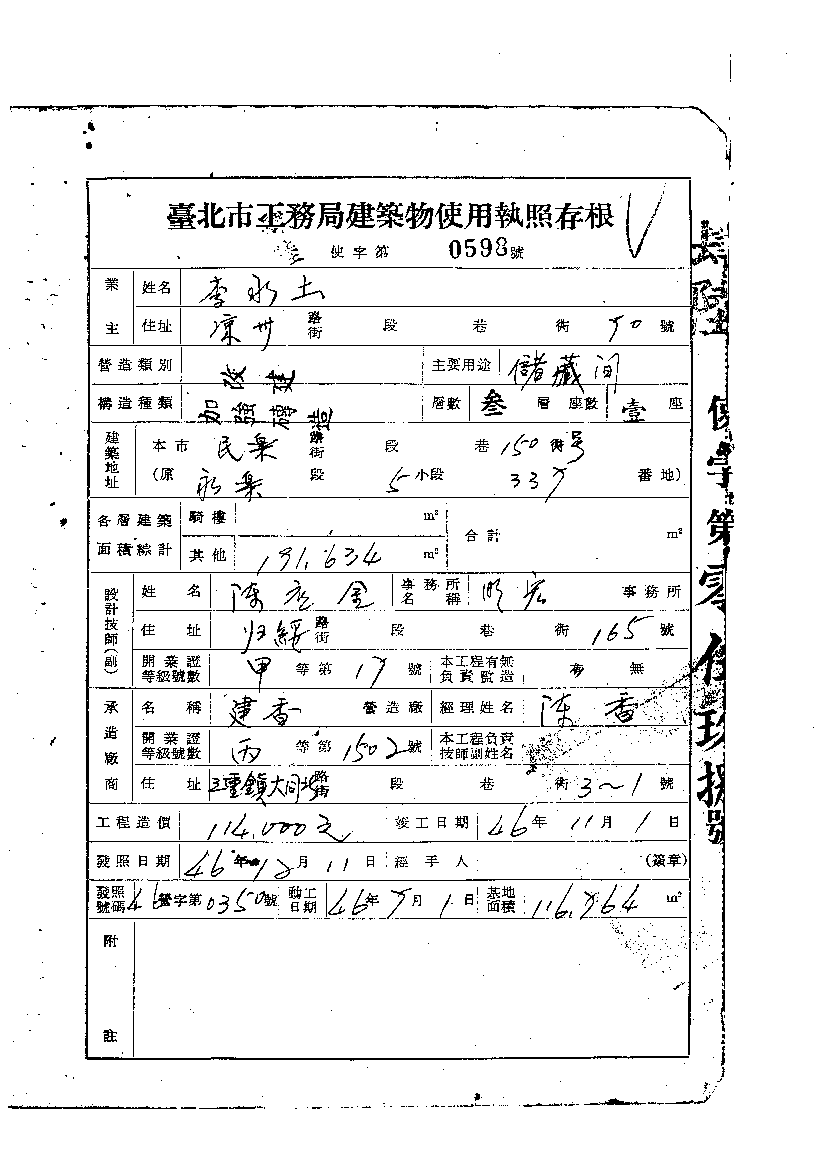 臺北市工務局建築物使用執照存根
使字第 0598號
業主 姓名 李永土
住址 涼州 路街 段 巷 街 50 號
營造類別 改建 主要用途 儲藏间
構造種類 加強磚造 層數 叁 層 座數 壹 座
建築地址 本市 民楽 路街 段 巷 150 街号
(原 永楽 段 5 小段 335 番地)
各層建築面積綜計 騎樓 m² 合計 m²
其他 191.634 m²
設計技師(副) 姓名 陳 金 事務所名稱 事務所
住址 归綏 路街 段 巷 街 165 號
開業證等級號數 甲 等第 17 號 本工程有無負責監造 有 無
承造廠商 名稱 建香 營造廠 經理姓名 陳香
開業證等級號數 丙 等第 1502 號 本工程負責技師副姓名
住址 三重鎮大同北 路街 段 巷 街 3~1 號
工程造價 114,000元 竣工日期 46年 11月 1日
發照日期 46年 12月 11日 經手人 (簽章)
發照號碼 46營字第0350號 動工日期 46年 5月 1日 基地面積 116.764 m²
附註
使字第零伍玖捌號